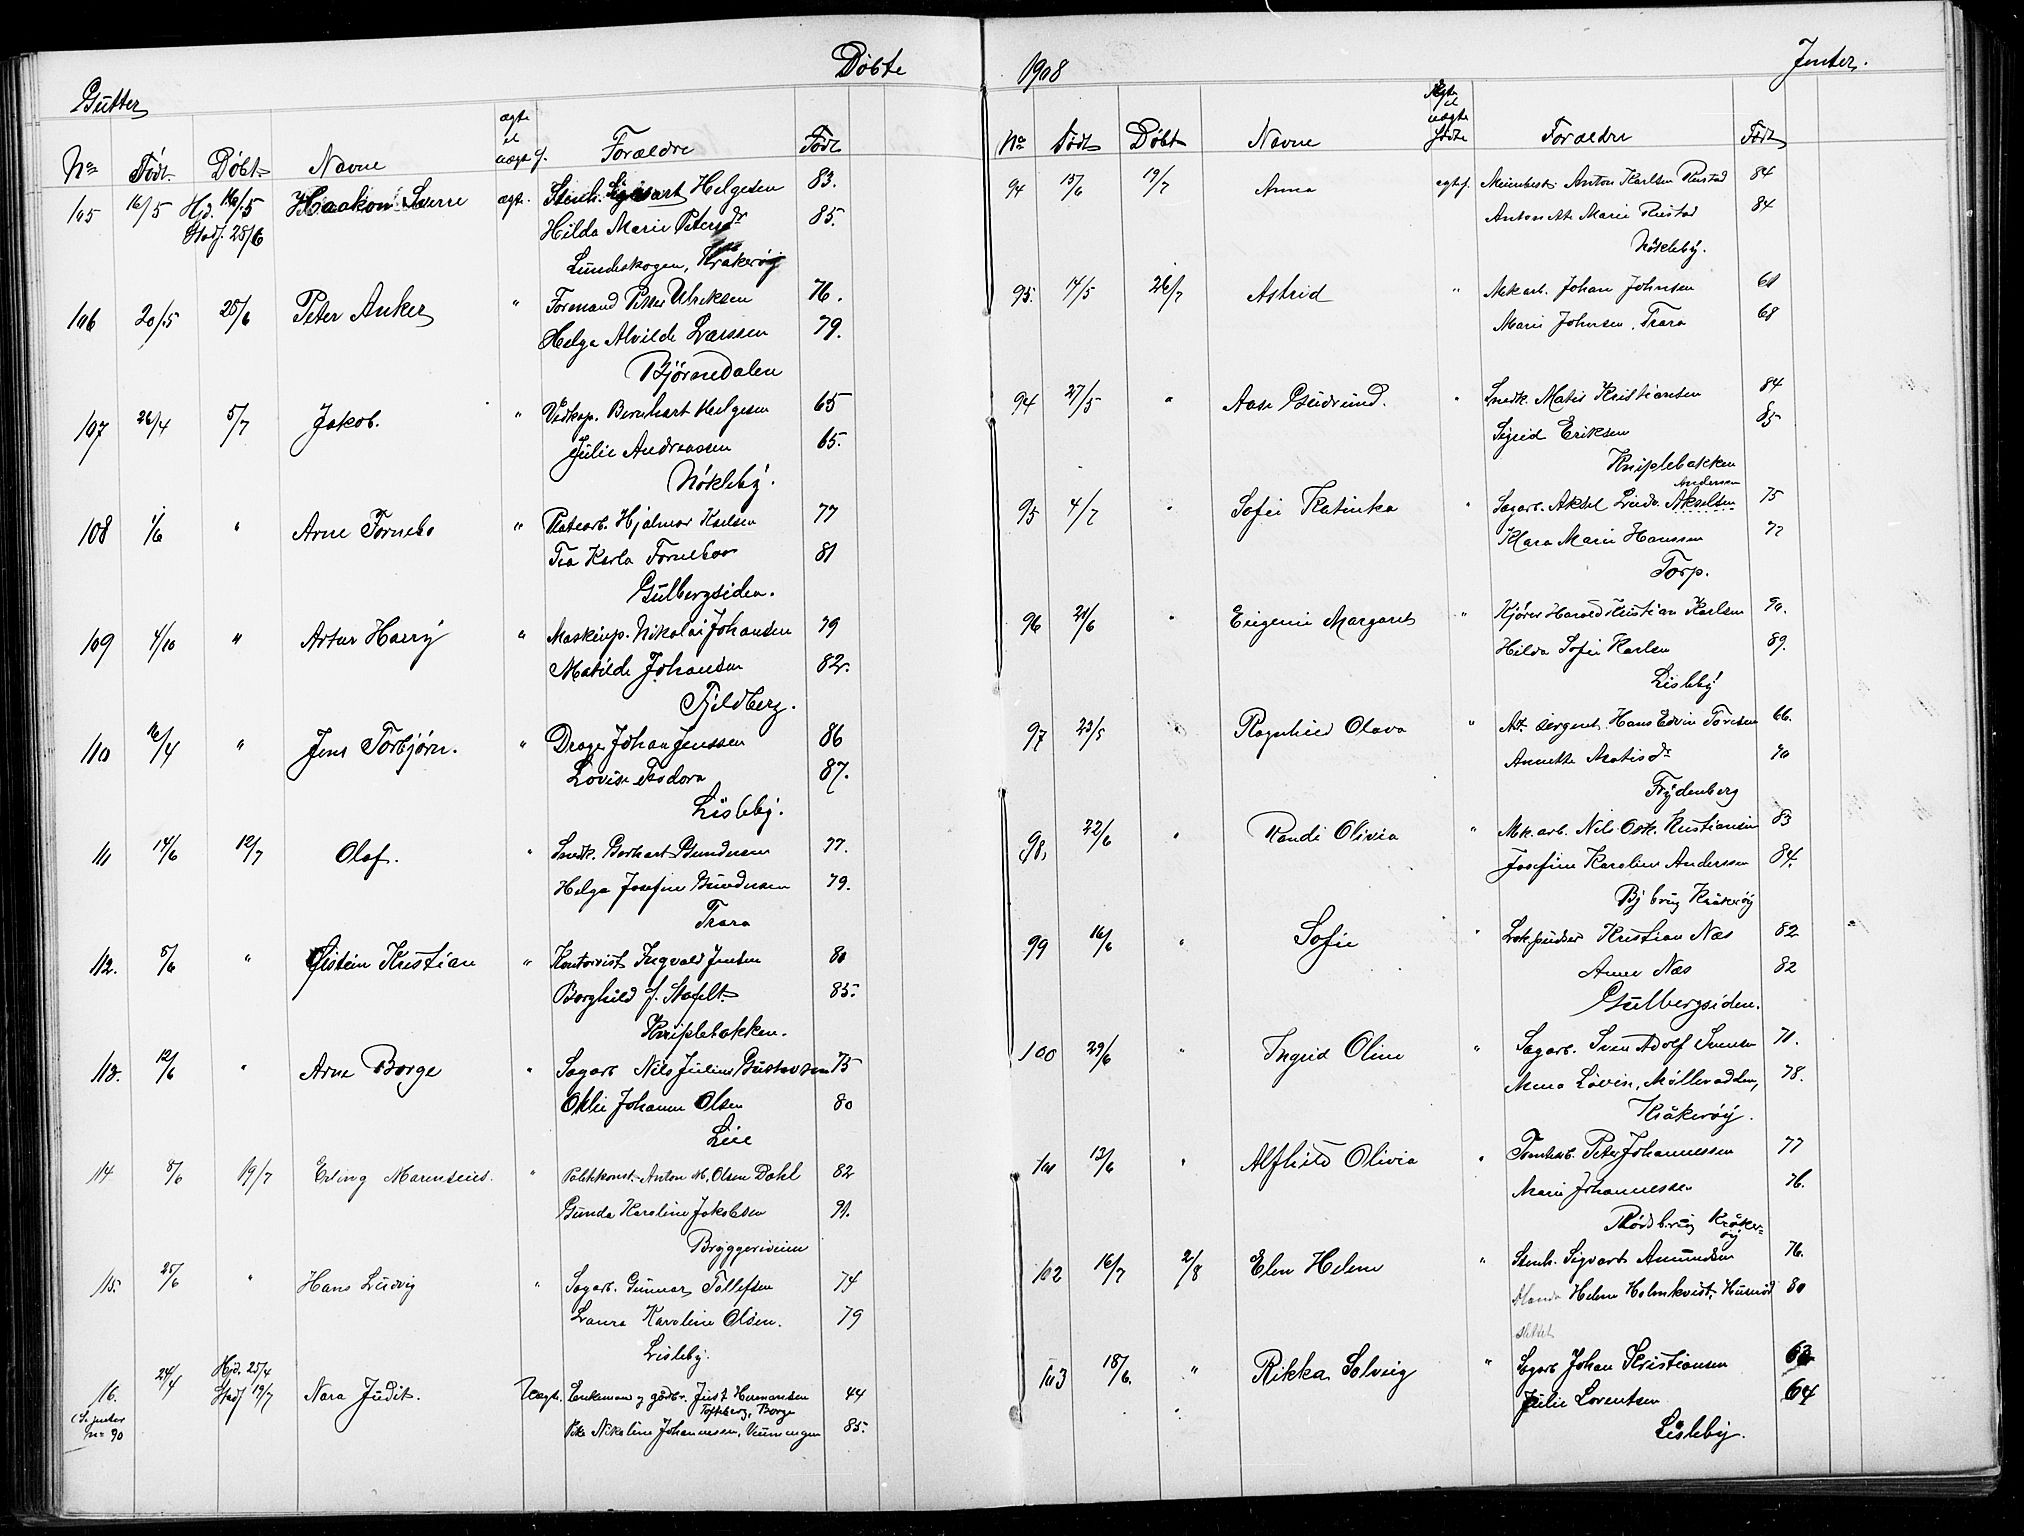 Døbte
1908
Gutter
Jenter.
No Født. Døbt. Navne ægte el uægte f. Forældre Født
105 16/5 Hd. 16/5 Haakon Sverre ægt. Stenh. Sigvart Helgesen 83.
Stadf. 28/6 Hilda Marie Petersdr 85.
Lundeskogen, Krakerøy
106 20/5 28/6 Peter Anker " Formand Peter Ulriksen 76.
Helga Alvilde Larssen 79.
Bjørnedalen
107 26/4 5/7 Jakob. " Vedkap. Bernhart Helgesen 65
Julie Andreassen 65.
Nökleby.
108 1/6 " Arne Fornebo " Platearb. Hjalmar Karlsen 77
Tea Karla Forneboe 81
Gulbergsiden.
109 4/10 " Artur Harry " Maskinp. Nikolai Johansen 79
Matilde Johansen 82.
Fjeldberg.
110 16/4 " Jens Torbjørn. " Drager Johan Jenssen 86
Lovise Teodora 87.
Lisleby.
111 14/6 12/7 Olaf. " Snedk. Gerhart Gundersen 77.
Helga Josefine Gundersen 79.
Trara
112. 8/6 " Øistein Kristian " Kontorist Ingvald Jensen 80
Borghild f. Stafelt 85.
Kniplebakken.
113. 12/6 " Arne Borge " Sagarb Nils Julius Gustavsen 75
Oklie Johanne Olsen 80
Lie
114 8/6 19/7 Erling Marensius. " Politikonst. Anton M. Olsen Dahl 82
Gunda Karoline Jakobsen 91.
Bryggeriveien
115. 25/6 " Hans Ludvig " Sagarb. Gunnar Tollefsen 74
Laura Karoline Olsen. 79
Lisleby.
16. 24/4 Hjd. 25/4 Stadf 19/7 Nora Judit. Uægte Lenksmann og gårdbr. Just Hermansen 44
Tofteberg, Borge
(Se jenter no 90 Pike Nikoline Johannessen, 85.
No Født Døbt Navne Ægte el uægte fødte Forældre Født
94 15/6 19/7 Anna ægte f. Anton Karlsen Rustad 84
Marie Rustad 84
Nökleby.
95. 14/5 26/7 Astrid " Mek arb. Johan Johnsen 61
Marie Johnsen, Trara 68
94 27/5 " Aase Gudrund. " Snedk. Matis Kristiansen 84
Sigrid Eriksen 85
Kniplebakken
95 4/7 " Sofie Katinka " Sagarb. Aksel Ludv. Akselsen Andersen 75
Klara Marie Hanssen 77
Torp.
96 21/6 " Eugenie Margaret " Kjører Harald Kristian Karlsen 90.
Hilda Sofie Karlsen 89.
Lisleby
97 23/5 " Ragnhild Olava " sergent Hans Edvin Toresen 66.
Annette Matisdr 70
Frydenberg
98. 22/6 " Randi Olivia " Mk. arb. Nils Osk. Kristiansen 83
Josefine Karoline Anderssen 84.
Bj brug Kråkerøy
99 16/6 " Sofie " Lokpudser Kristian Næs 82
Anne Næs 82
Gulbergsiden.
100 29/6 " Ingrid Oline " Sagarb. Sven Adolf Svensen 71.
Mina Lovise, Møllerodden, 78.
Kråkerøy.
101 13/6 " Alfhild Olivia " Tomtearb. Peter Johannessen 77
Marie Johannessen 76.
Rødsbrug Kråkerøy
102 16/7 2/8 Elen Helene " Stenh. Sigvart Amundsen 76.
Helene Holmkvist, Husrød 80
slettet
103 18/6. " Rikka Solveig " Sagarb Johan Kristiansen 63
Julie Lorentsen 64
Lisleby.